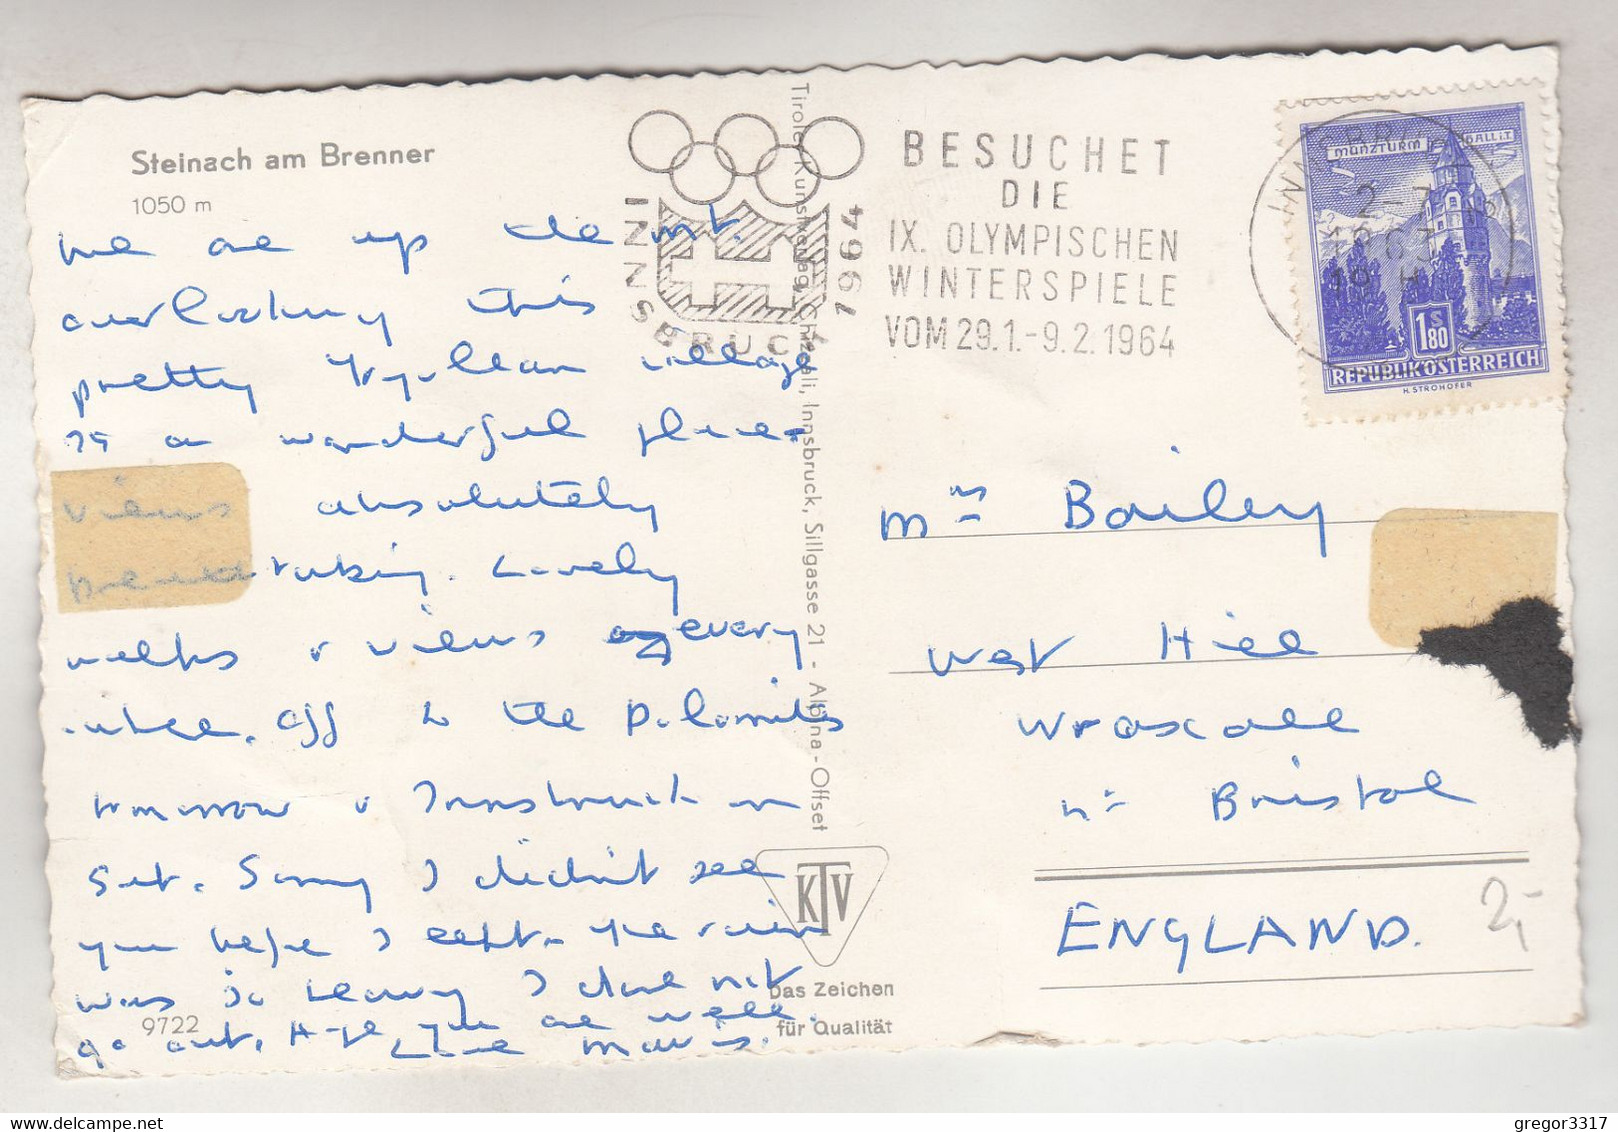 Steinach am Brenner
1050 m
We are up the mt.
overlooking this
pretty Tyrolean village
It's a wonderful place -
views absolutely
breathtaking. Lovely
walks & views every
where. Off to the Dolomites
tomorrow & Innsbruck on
Sat. Sorry I didn't see
you before I left. The rain
was so heavy I dare not
go out. Hope you are well.
Love Mavis.
9722
Tiroler Kunstverlag Chizzali, Innsbruck, Sillgasse 21 - Alpina-Offset
KTV
Das Zeichen
für Qualität
INNSBRUCK 1964
BESUCHET
DIE
IX. OLYMPISCHEN
WINTERSPIELE
VOM 29.1.-9.2.1964
INNSBRUCK
2-7
1963
MÜNZTURM HALL i.T.
1 S 80
REPUBLIK ÖSTERREICH
H. STROHOFER
Mrs Bailey
West Hill
Wraxall
Nr Bristol
ENGLAND.
2,-
gregor3317
delcampe.net